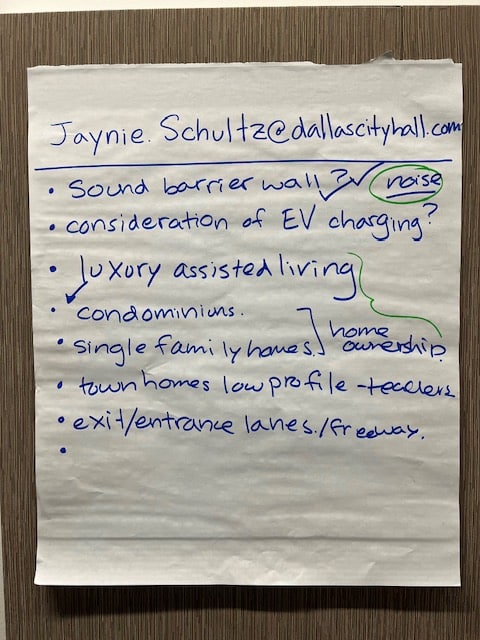 Jaynie.Schultz@dallascityhall.com
• Sound barrier wall? noise
• consideration of EV charging?
• luxury assisted living
• condominiums.
• single family homes. home ownership.
• townhomes low profile -
• exit/entrance lanes./freeway.
•